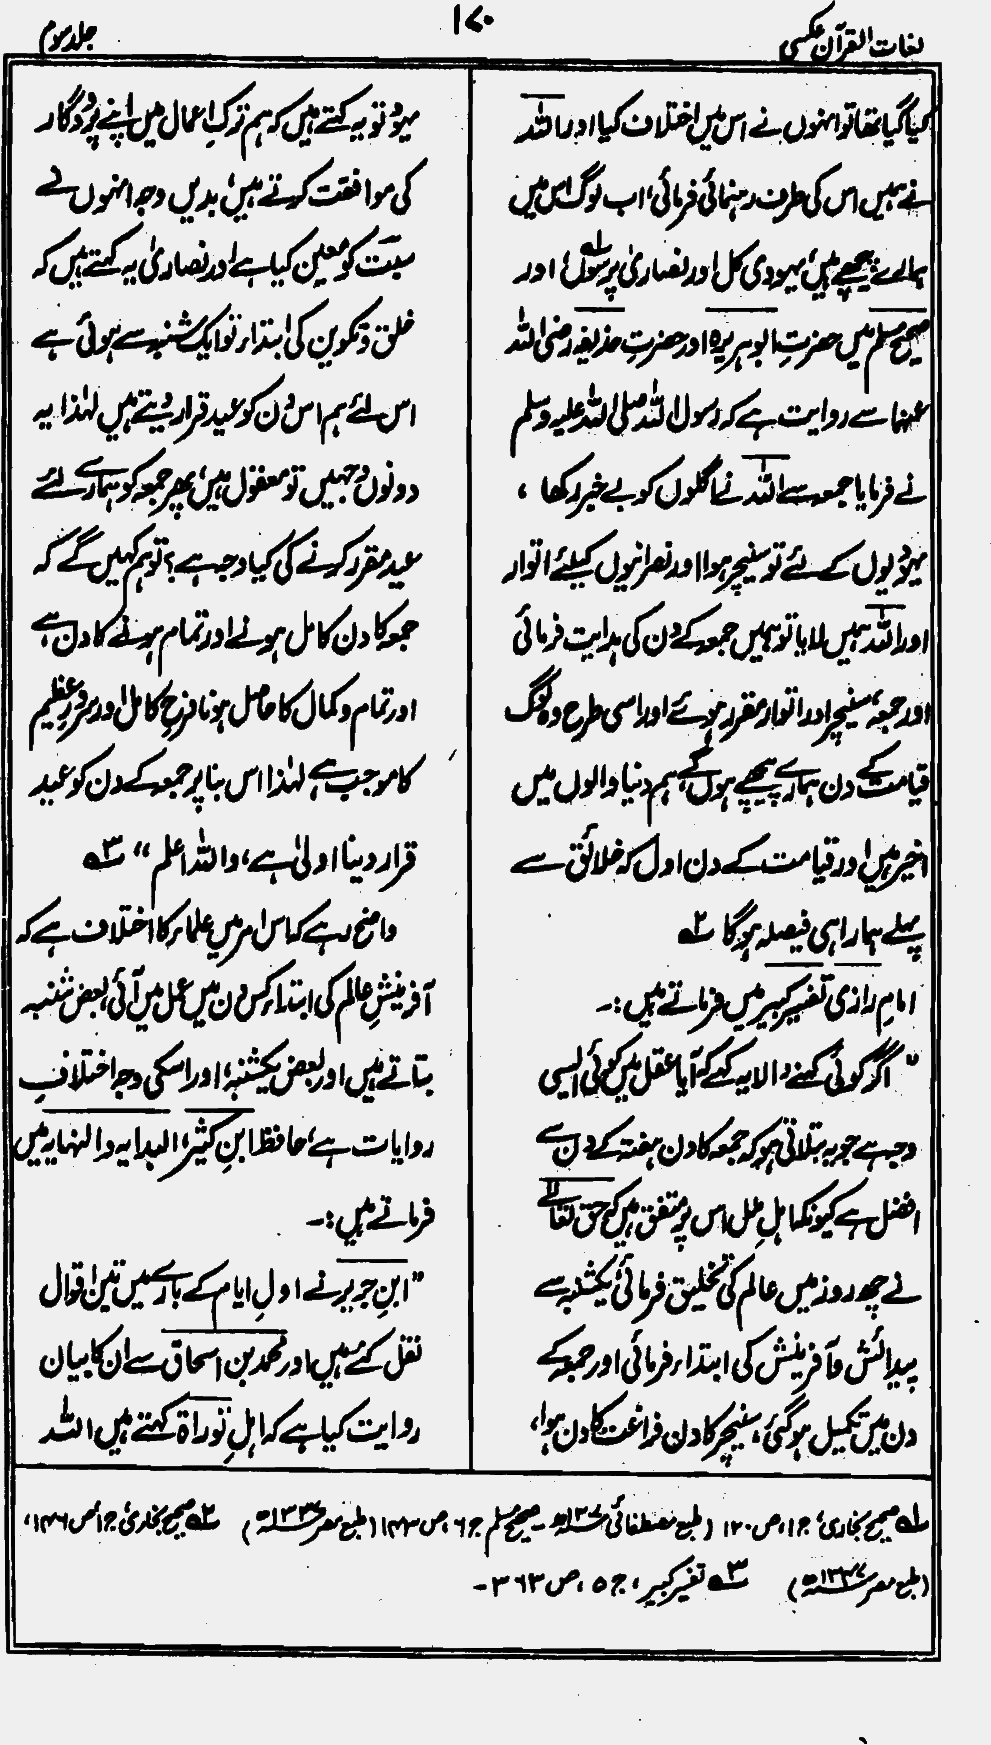 لغات القرآن عکسی
۱۷۰
جلد سوم
کیا گیا تھا تو انہوں نے اس میں اختلاف کیا اور اللہ
نے ہمیں اس کی طرف رہنمائی فرمائی، اب لوگ اس میں
ہمارے پیچھے ہیں، یہودی کل اور نصاریٰ پرسوں ۱ہ اور
صحیح مسلم میں حضرتِ ابو ہریرہ اور حضرتِ حذیفہ رضی اللہ
عنہما سے روایت ہے کہ رسول اللہ صلی اللہ علیہ وسلم
نے فرمایا جمعہ سے اللہ نے اگلوں کو بے خبر رکھا ،
یہودیوں کے لئے تو سنیچر ہوا اور نصرانیوں کیلئے اتوار
اور اللہ ہمیں لایا تو ہمیں جمعہ کے دن کی ہدایت فرمائی
اور جمعہ، سنیچر اور اتوار مقرر ہوئے اور اسی طرح وہ لوگ
قیامت کے دن ہمارے پیچھے ہوں گے، ہم دنیا والوں میں
اخیر ہیں اور قیامت کے دن اول کہ خلائق سے
پہلے ہمارا ہی فیصلہ ہوگا ۲ہ
امامِ رازی تفسیر کبیر میں فرماتے ہیں :۔
" اگر کوئی کہنے والا یہ کہے کہ آیا عقل میں کوئی ایسی
وجہ ہے جو یہ بتلاتی ہو کہ جمعہ کا دن ہفتہ کے دن سے
افضل ہے کیونکہ اہلِ ملل اس پر متفق ہیں کہ حق تعالےٰ
نے چھ روز میں عالم کی تخلیق فرمائی، یکشنبہ سے
پیدائش و آفرینش کی ابتداء فرمائی اور جمعہ کے
دن میں تکمیل ہوگئی، سنیچر کا دن فراغت کا دن ہوا،
یہود تو یہ کہتے ہیں کہ ہم ترکِ اعمال میں اپنے پروردگار
کی موافقت کرتے ہیں، بدیں وجہ انہوں نے
سبت کو معین کیا ہے اور نصاریٰ یہ کہتے ہیں کہ
خلق و تکوین کی ابتداء تو ایک شنبہ سے ہوئی ہے
اس لئے ہم اس دن کو عید قرار دیتے ہیں لہٰذا یہ
دونوں وجہیں تو معقول ہیں، پھر جمعہ کو ہمارے لئے
عید مقرر کرنے کی کیا وجہ ہے؟ تو ہم کہیں گے کہ
جمعہ کا دن کامل ہونے اور تمام ہونے کا دن ہے
اور تمام و کمال کا حاصل ہونا فرحِ کامل اور سرورِ عظیم
کا موجب ہے لہٰذا اس بنا پر جمعہ کے دن کو عید
قرار دینا اولیٰ ہے، واللہ اعلم " ۳ہ
واضح رہے کہ اس امر میں علماء کا اختلاف ہے کہ
آفرینشِ عالم کی ابتداء کس دن میں عمل میں آئی، بعض شنبہ
بتاتے ہیں اور بعض یکشنبہ، اور اسکی وجہ اختلافِ
روایات ہے، حافظ ابنِ کثیر، البدایہ والنہایہ میں
فرماتے ہیں :۔
" ابنِ جریر نے اولِ ایام کے بارے میں تین اقوال
نقل کئے ہیں اور محمد بن اسحاق سے ان کا بیان
روایت کیا ہے کہ اہلِ توراۃ کہتے ہیں اللہ
۱ہ صحیح بخاری، ج۱، ص ۱۲۰ (طبع مصطفائی ۱۳۰۷ھ ۔ صحیح مسلم ج۶، ص ۱۴۳ (طبع مصر ۱۳۳۴ھ) ۲ہ صحیح بخاری، ج۱، ص ۱۴۶،
(طبع مصر ۱۳۳۴ھ) ۳ہ تفسیر کبیر، ج ۵، ص ۳۶۳ ۔